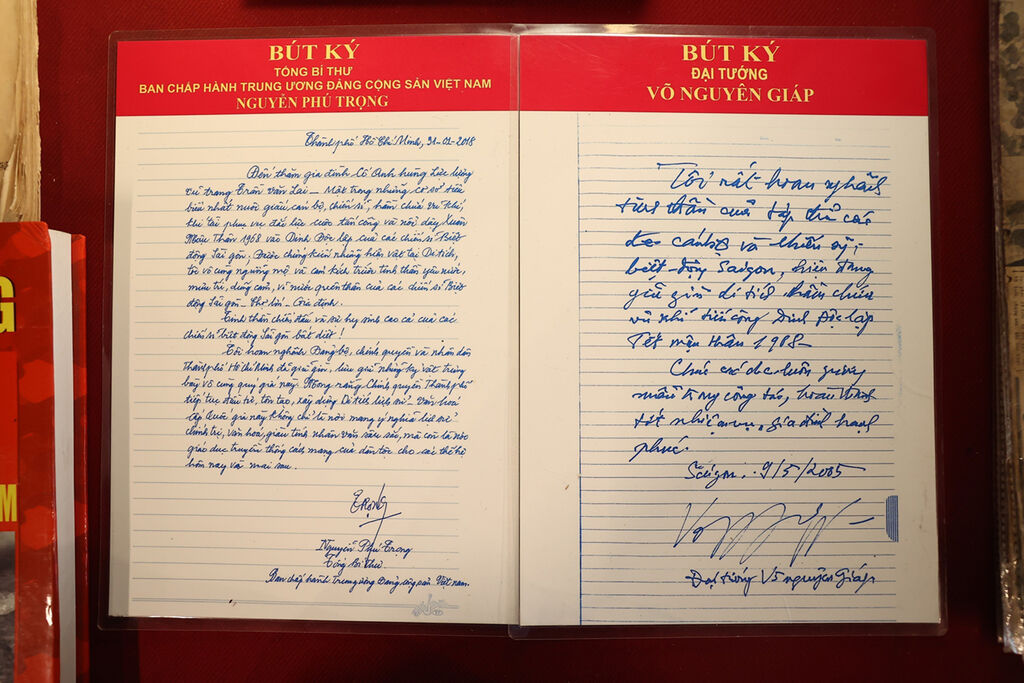 BÚT KÝ
TỔNG BÍ THƯ
BAN CHẤP HÀNH TRUNG ƯƠNG ĐẢNG CỘNG SẢN VIỆT NAM
NGUYỄN PHÚ TRỌNG
Thành phố Hồ Chí Minh, 31-01-2018
Đến thăm gia đình Cố Anh hùng Lực lượng
vũ trang Trần Văn Lai – Một trong những cơ sở tiêu
biểu nhất nuôi giấu cán bộ, chiến sĩ, hầm chứa vũ khí,
khí tài phục vụ đắc lực cuộc tấn công và nổi dậy Xuân
Mậu Thân 1968 vào Dinh Độc lập của các chiến sĩ Biệt
động Sài Gòn; Được chứng kiến những hiện vật tại Di tích,
tôi vô cùng ngưỡng mộ và cảm kích trước tinh thần yêu nước,
mưu trí, dũng cảm, vì nước quên thân của các chiến sĩ Biệt
động Sài gòn – Chợ lớn – Gia định.
Tinh thần chiến đấu và sự hy sinh cao cả của các
chiến sĩ biệt động Sài gòn bất diệt!
Tôi hoan nghênh Đảng bộ, chính quyền và nhân dân
Thành phố Hồ Chí Minh đã giữ gìn, lưu giữ những kỷ vật trưng
bày vô cùng quý giá này. Mong rằng Chính quyền Thành phố
tiếp tục đầu tư, tôn tạo, xây dựng Di tích lịch sử – Văn hoá
cấp Quốc gia này không chỉ là nơi mang ý nghĩa lịch sử
chính trị, văn hoá, giàu tính nhân văn sâu sắc, mà còn là nơi
giáo dục truyền thống cách mạng của dân tộc cho các thế hệ
hôm nay và mai sau.
Trọng
Nguyễn Phú Trọng
Tổng Bí Thư
Ban chấp hành trung ương Đảng cộng sản Việt Nam.
BÚT KÝ
ĐẠI TƯỚNG
VÕ NGUYÊN GIÁP
Tôi rất hoan nghênh
tinh thần của tập thể các
đ/c cán bộ và chiến sỹ,
biệt động Saigon, hiện đang
giữ gìn di tích hầm chứa
vũ khí tiến công Dinh Độc lập
Tết mậu thân 1968–
Chúc các đ/c luôn gương
mẫu trong công tác, hoàn thành
tốt nhiệm vụ, gia đình hạnh
phúc.
Sàigon. 9/5/2005
Đại tướng Võ nguyên Giáp
G
M